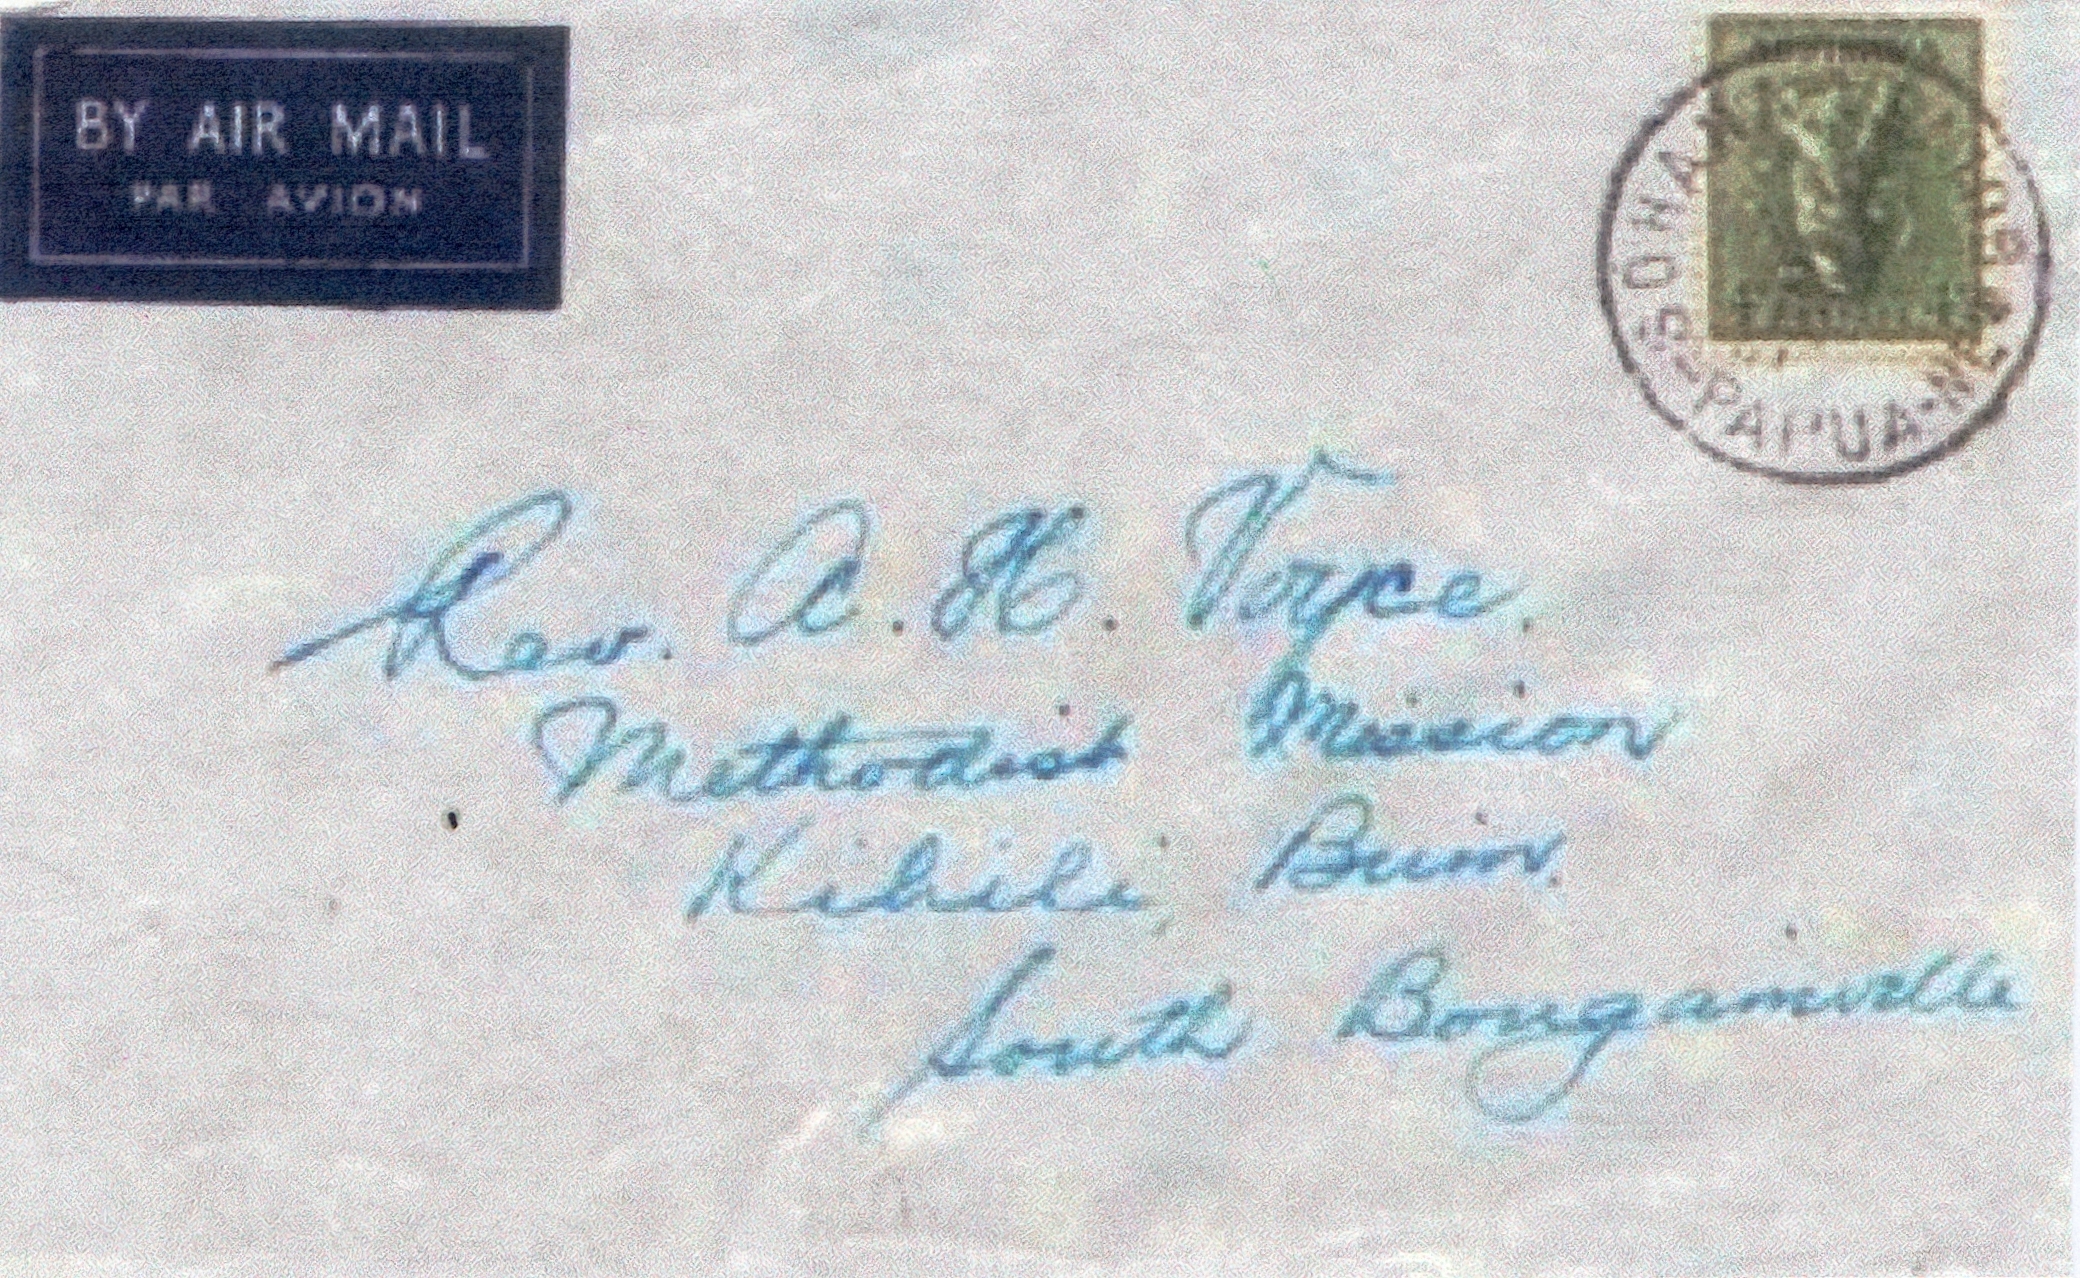 BY AIR MAIL
PAR AVION
SOHANO
PAPUA-N.
Rev. A. H. Voyce.
Methodist Mission
Kihili, Buin.
South Bougainville